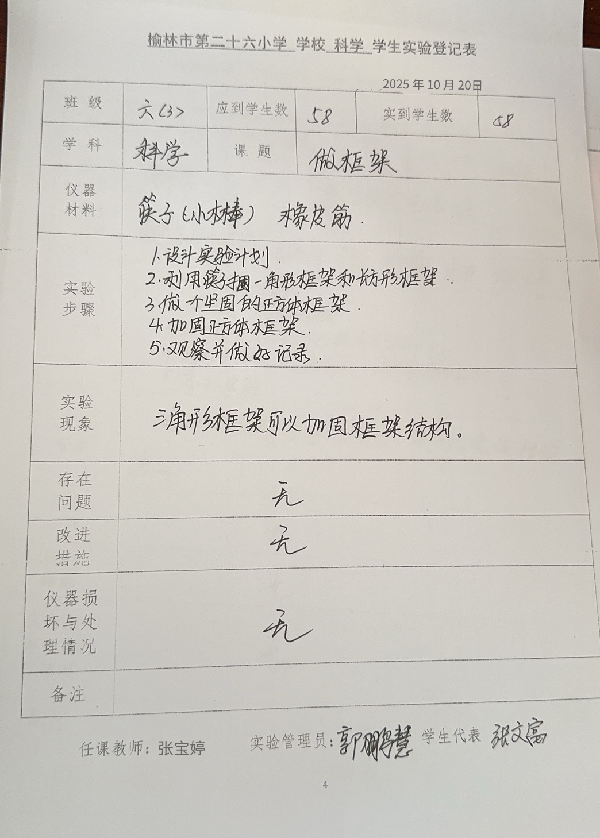 榆林市第二十六小学 学校 科学 学生实验登记表
2025年10月20日
班 级 六(3) 应到学生数 58 实到学生数 58
学 科 科学 课 题 做框架
仪器
材料
筷子(小木棒) 橡皮筋.
实验
步骤
1.设计实验计划.
2.利用筷子捆一角形框架和长方形框架.
3.做一个坚固的正方体框架.
4.加固正方体框架.
5.观察并做好记录.
实验
现象
三角形框架可以加固框架结构。
存在
问题
无
改进
措施
无
仪器损
坏与处
理情况
无
备注
任课教师：张宝婷 实验管理员：郭鹏慧 学生代表 张文富
4